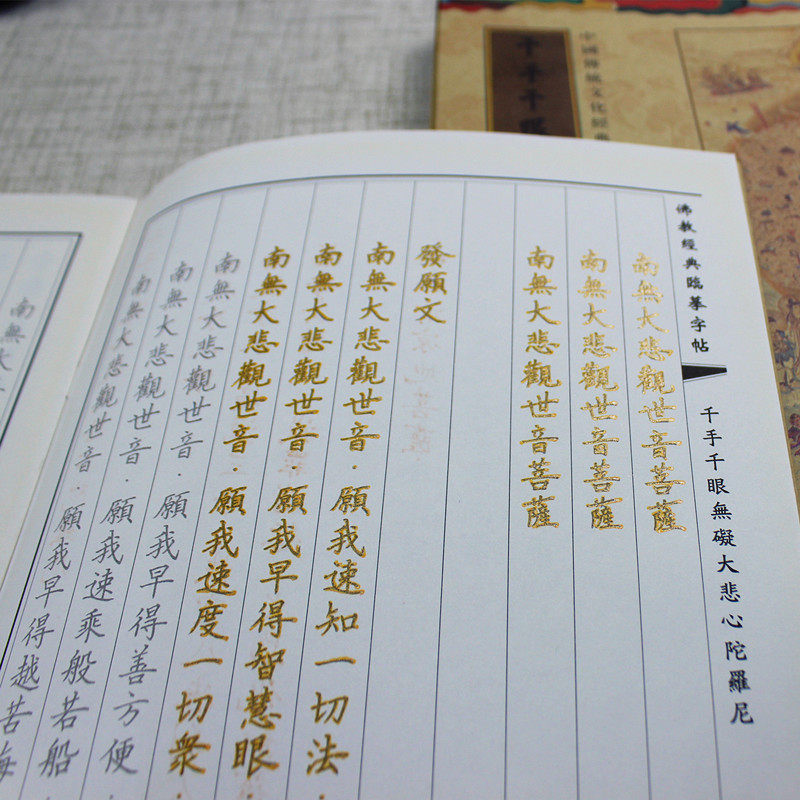 佛教經典臨摹字帖
千手千眼無礙大悲心陀羅尼
南無大悲觀世音菩薩
南無大悲觀世音菩薩
南無大悲觀世音菩薩
發願文
南無大悲觀世音·願我速知一切法·
南無大悲觀世音·願我早得智慧眼·
南無大悲觀世音·願我速度一切衆·
南無大悲觀世音·願我早得善方便·
南無大悲觀世音·願我速乘般若船·
南無大悲觀世音·願我早得越苦海
南無大
千手千眼
中國傳統文化經典